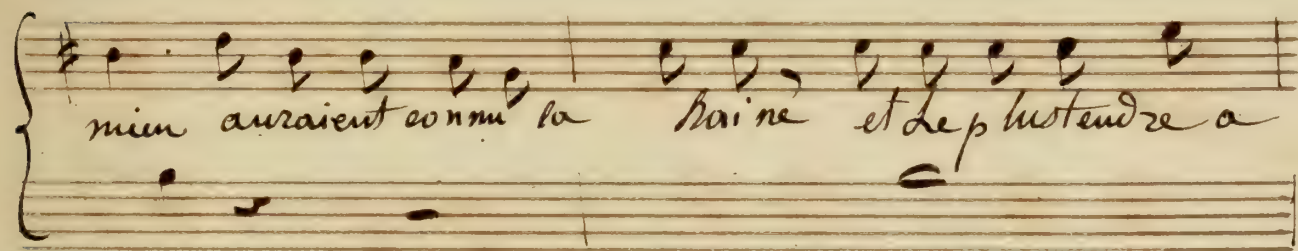 mien auraient connu la haine et Le plus tendre a